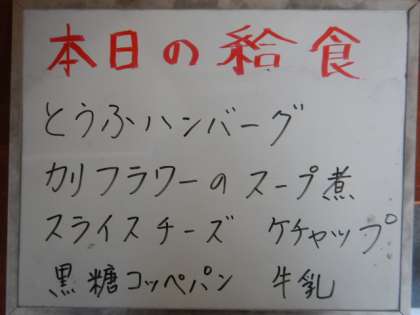 本日の給食
とうふハンバーグ
カリフラワーのスープ煮
スライスチーズ ケチャップ
黒糖コッペパン 牛乳